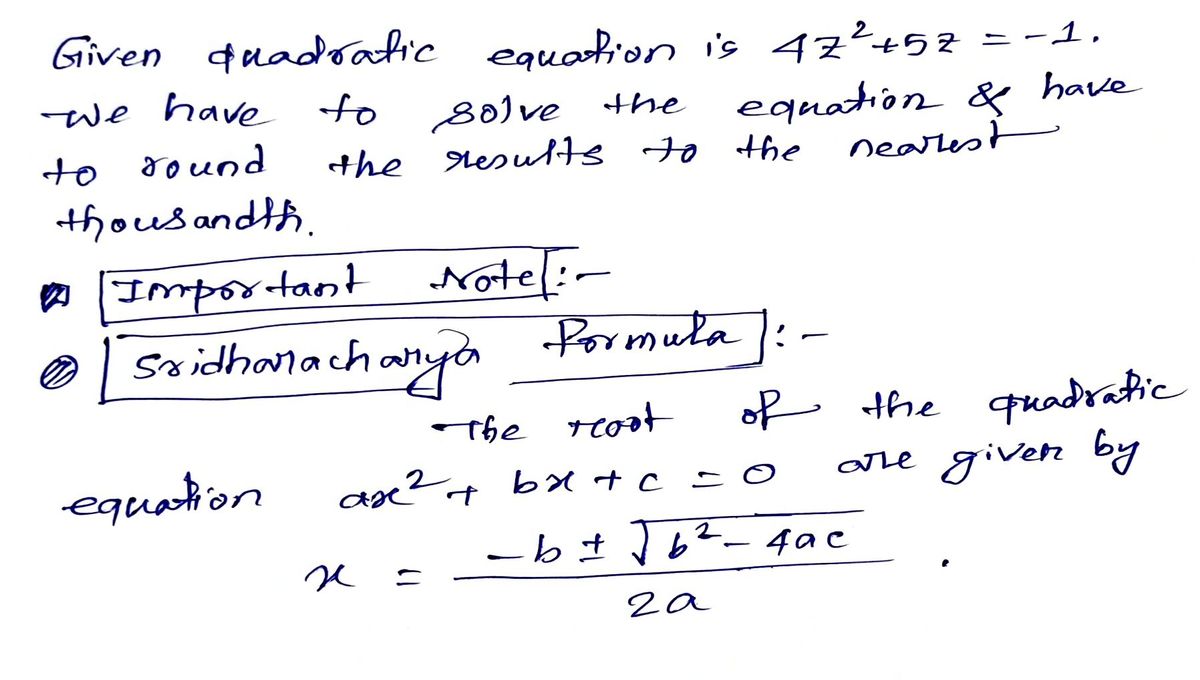 Given quadratic equation is 4z²+5z = -1.
We have to solve the equation & have
to round the results to the nearest
thousandth.
Important Note :-
Sridharacharya Formula :-
The root of the quadratic
equation ax² + bx + c = 0 are given by
x = (-b ± √(b² - 4ac)) / 2a .